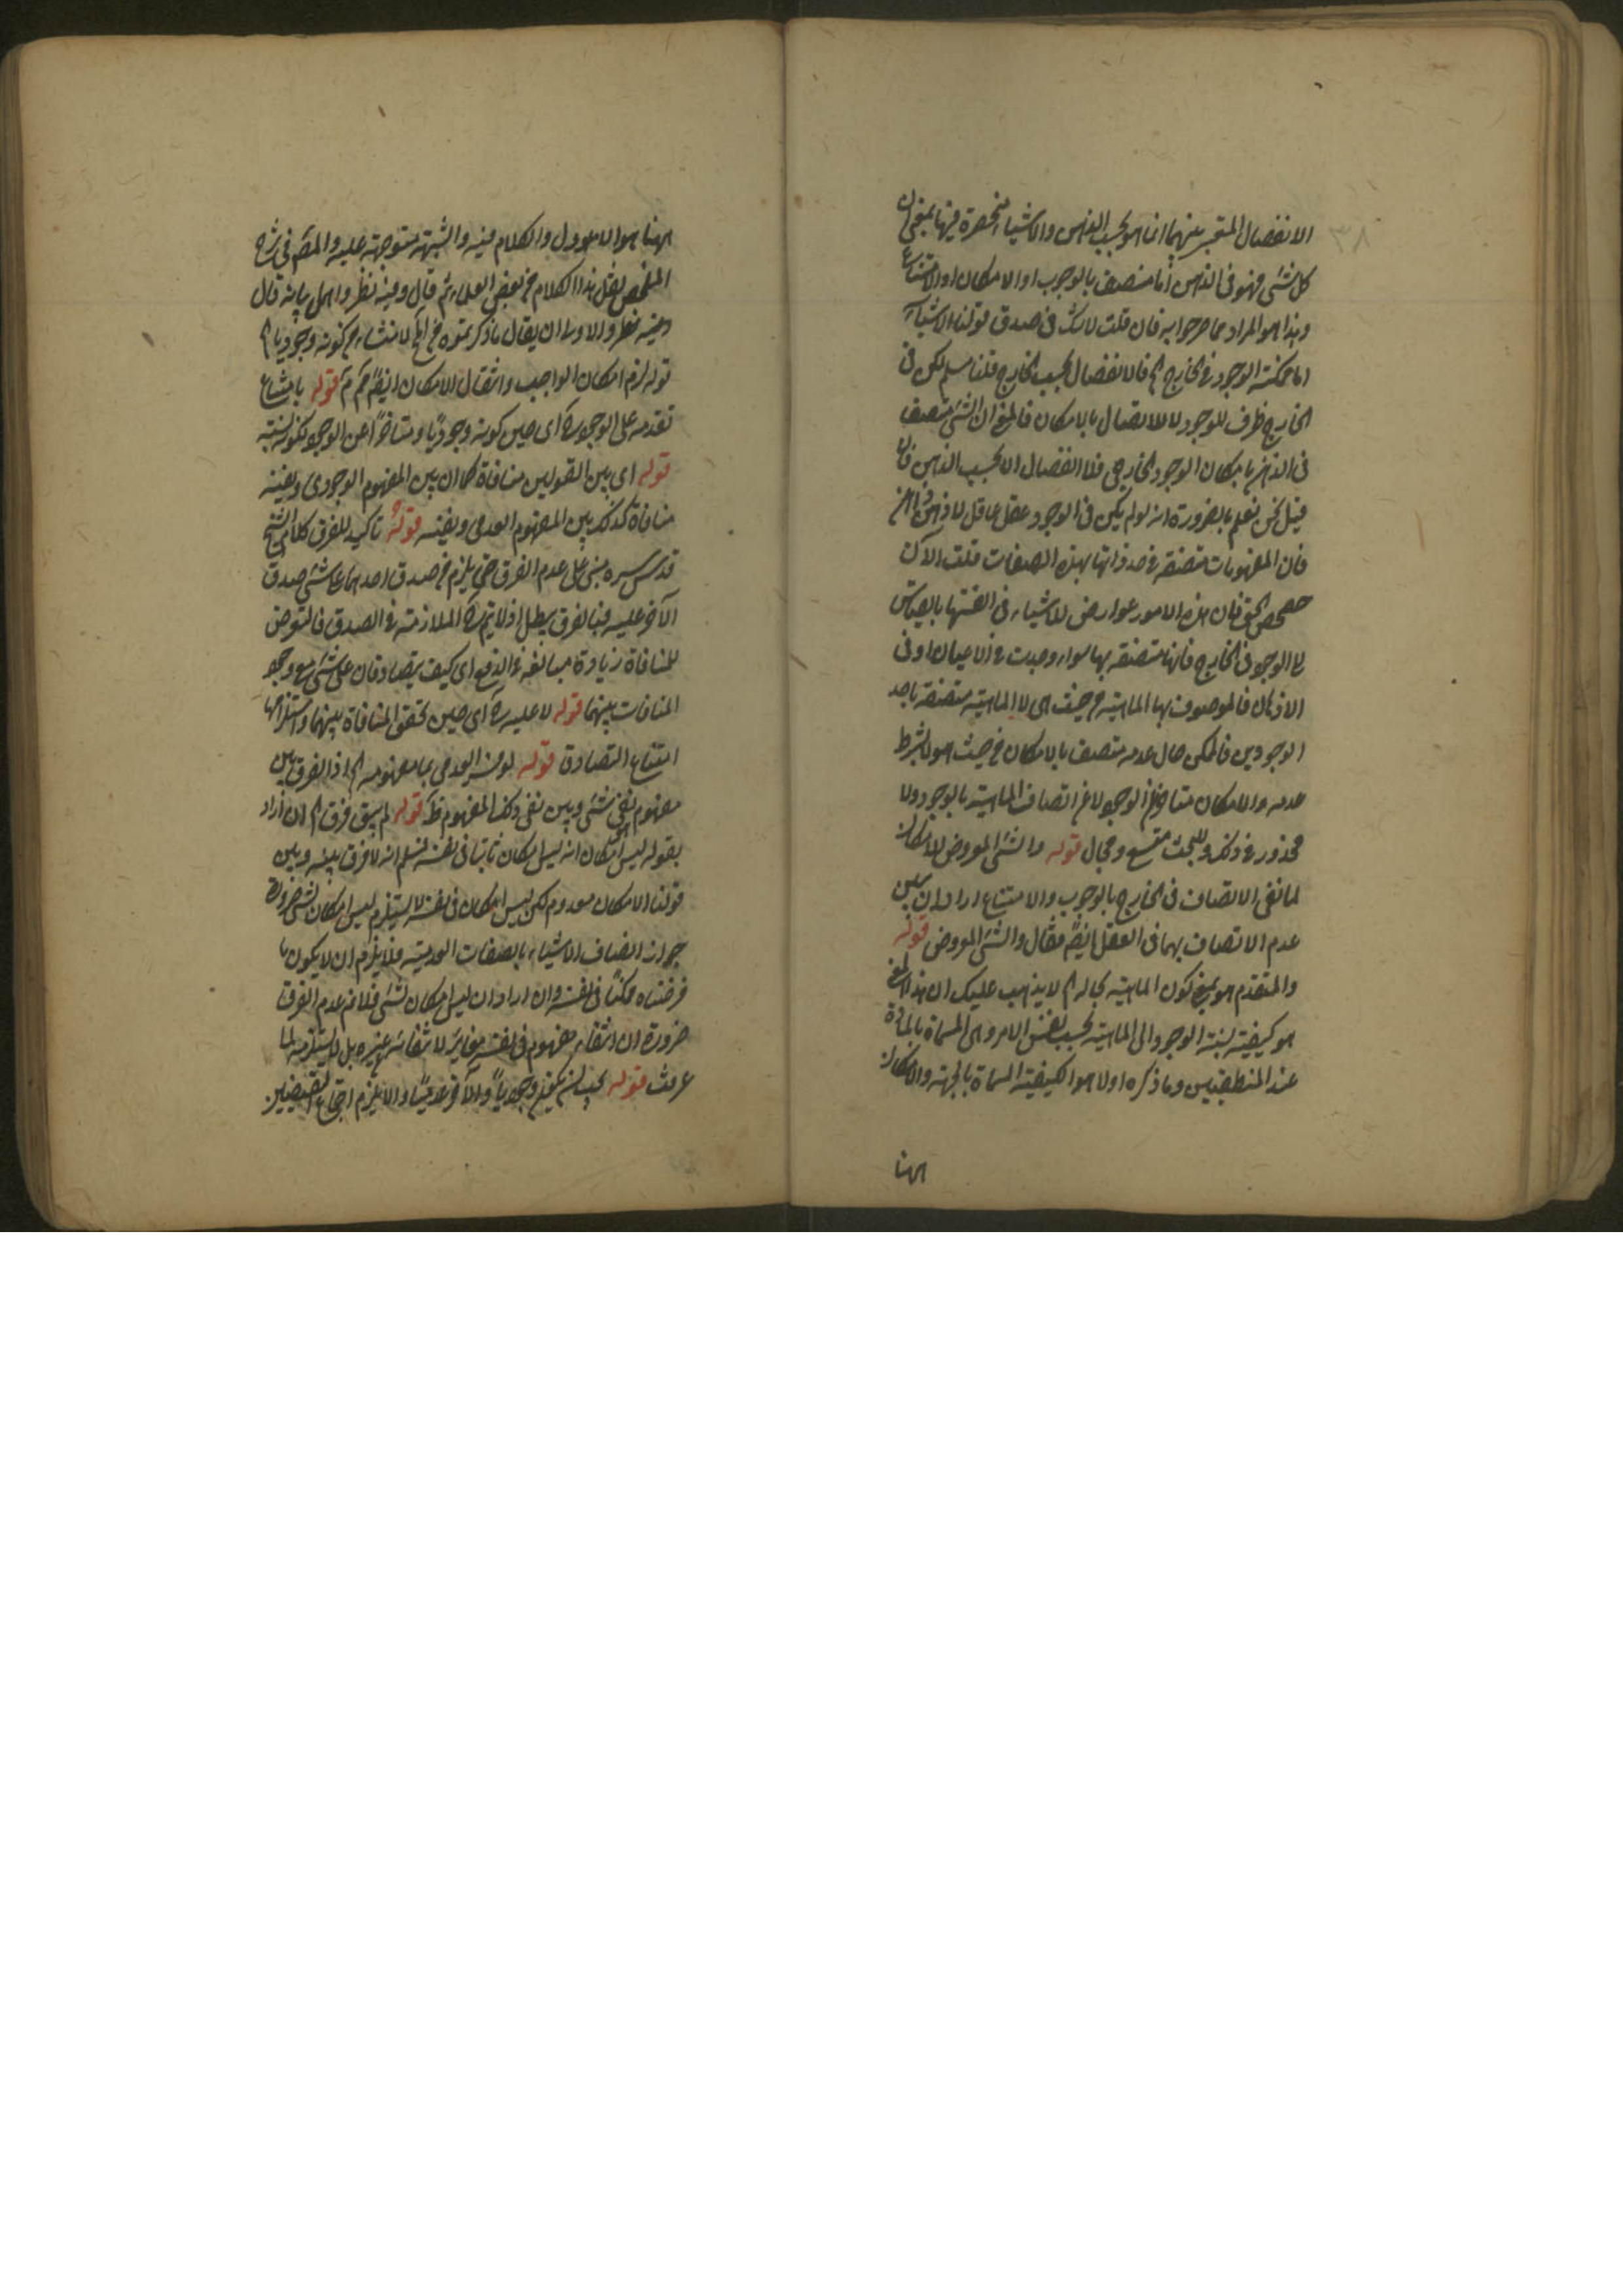 ٣٨
الانفصال المعتبر بينهما انما هو بحسب الذهن والاشياء منحصرة فيها بمعنى ان
كل شئ فهو في الذهن اما متصف بالوجوب او الامكان او الامتناع
وهذا هو المراد مما صرحوا به فان قلت لا شك في صدق قولنا الاشياء
اما ممكنة الوجود في الخارج الخ فالانفصال بحسب الخارج قلنا مسلم لكن في
الخارج ظرف للوجود لا للاتصاف بالامكان فالمعنى ان الشئ متصف
في الذهن بامكان الوجود الخارجي فلا انفصال الا بحسب الذهن فان
قيل نحن نعلم بالضرورة انه لو لم يكن في الوجود عقل عاقل لا ذهن ذاهن
فان المفهومات متصفة في حد ذاتها بهذه الصفات قلت الآن
حصحص الحق فان هذه الامور عوارض للاشياء في انفسها بالقياس
الى الوجود في الخارج فانها متصفة بها سواء وجدت في الاعيان او في
الاذهان فالموصوف بها الماهية من حيث هي لا الماهية متصفة باحد
الوجودين فالممكن حال عدمه متصف بالامكان من حيث هو لا بشرط
عدمه والامكان متأخر عن الوجود لا عن اتصاف الماهية بالوجود ولا
محذور في ذلك وللبحث متسع ومجال قوله والشئ المعروض للامكان
لما نفى الاتصاف في الخارج بالوجوب والامتناع اراد ان يبين
عدم الاتصاف بهما في العقل ايضا فقال والشئ المعروض قوله
والمتقدم هو بمعنى كون الماهية بحاله الخ لا يذهب عليك ان هذا المعنى
هو كيفية نسبة الوجود الى الماهية بحسب نفس الامر وهي المسماة بالمادة
عند المنطقيين وما ذكره اولا هو الكيفية المسماة بالجهة والامكان
ههنا
ههنا هو الاول والكلام فيه والشبهة متوجهة عليه والمص في شرح
الملخص نقل هذا الكلام من بعض العلماء ثم قال وفيه نظر
وفيه نظر والاولى ان يقال ما ذكرتموه من الخ لا منشاء من كونه وجوديا
قوله لزم امكان الواجب وانتقال الامكان ايضا قوله بامتناع
تقدمه على الوجود اي حين كونه وجوديا ومتأخرا عن الوجود لكونه نسبة
قوله اي بين القولين منافاة كما ان بين المفهوم الوجودي ونفيه
منافاة كذلك بين المفهوم العدمي ونفيه قوله تاكيد للفرق كلام الشيخ
قدس سره مبني على عدم الفرق حتى يلزم من صدق احدهما على شئ صدق
الآخر عليه فبالفرق يبطل اذ لا يتم الملازمة في الصدق فالتعرض
للمنافاة زيادة مبالغة في الدفع اي كيف يتصادقان على شئ مع وجود
المنافات بينهما قوله لا عليه اي حين تحقق المنافاة بينهما واستلزامها
امتناع التصادق قوله لو فسر العدمي بما مفهومه الخ اذ الفرق بين
مفهوم نفي شئ وبين نفي ذلك المفهوم ظ قوله لم يبق فرق الخ ان اراد
بقوله ليس بامكان انه ليس امكان ثابتا في نفسه نسلم انه لا فرق بينه وبين
قولنا الامكان معدوم لكن ليس امكان في نفسه لا يستلزم ليس امكان لشئ ضرورة
جواز اتصاف الاشياء بالصفات العدمية فلا يلزم ان لا يكون ما
فرضناه ممكنا في نفسه وان اراد ان ليس امكان لشئ فلانم عدم الفرق
ضرورة ان انتفاء مفهوم في نفسه مغاير لانتفائه عن غيره بل لا يستلزمه لما
عرفت قوله يجب ان يكون وجوديا والآخر عدميا والا يلزم اجتماع النقيضين